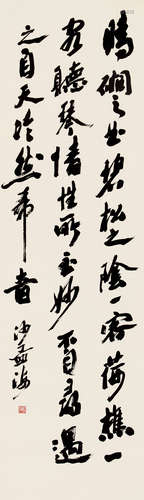 晴磵之曲碧松之陰一客荷樵一
客聽琴情性所至妙不自尋遇
之自天泠然希音
沙孟海